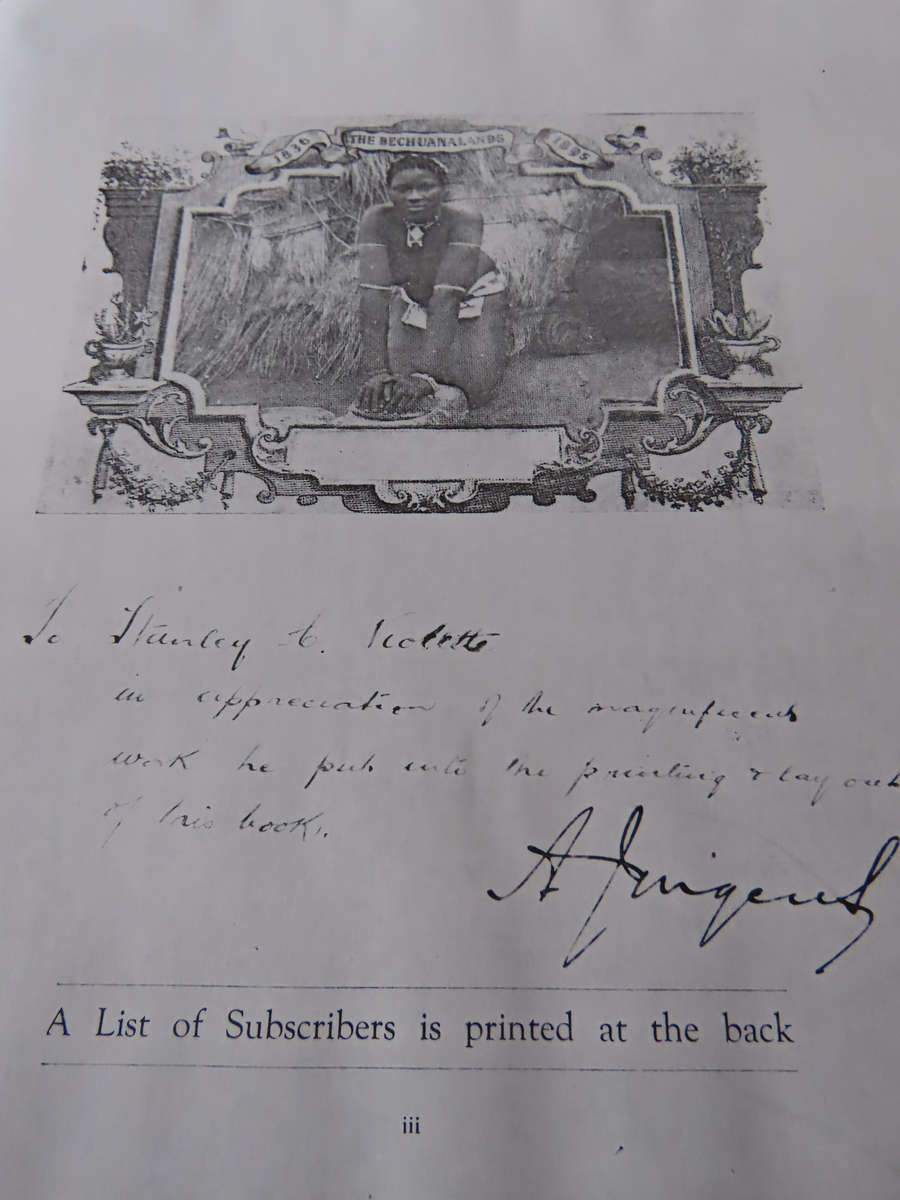 1836 THE BECHUANALANDS 1885
To Stanley A. Violette
in appreciation of the magnificent
work he put into the printing & lay out
of this book.
A Jurgens
A List of Subscribers is printed at the back
iii